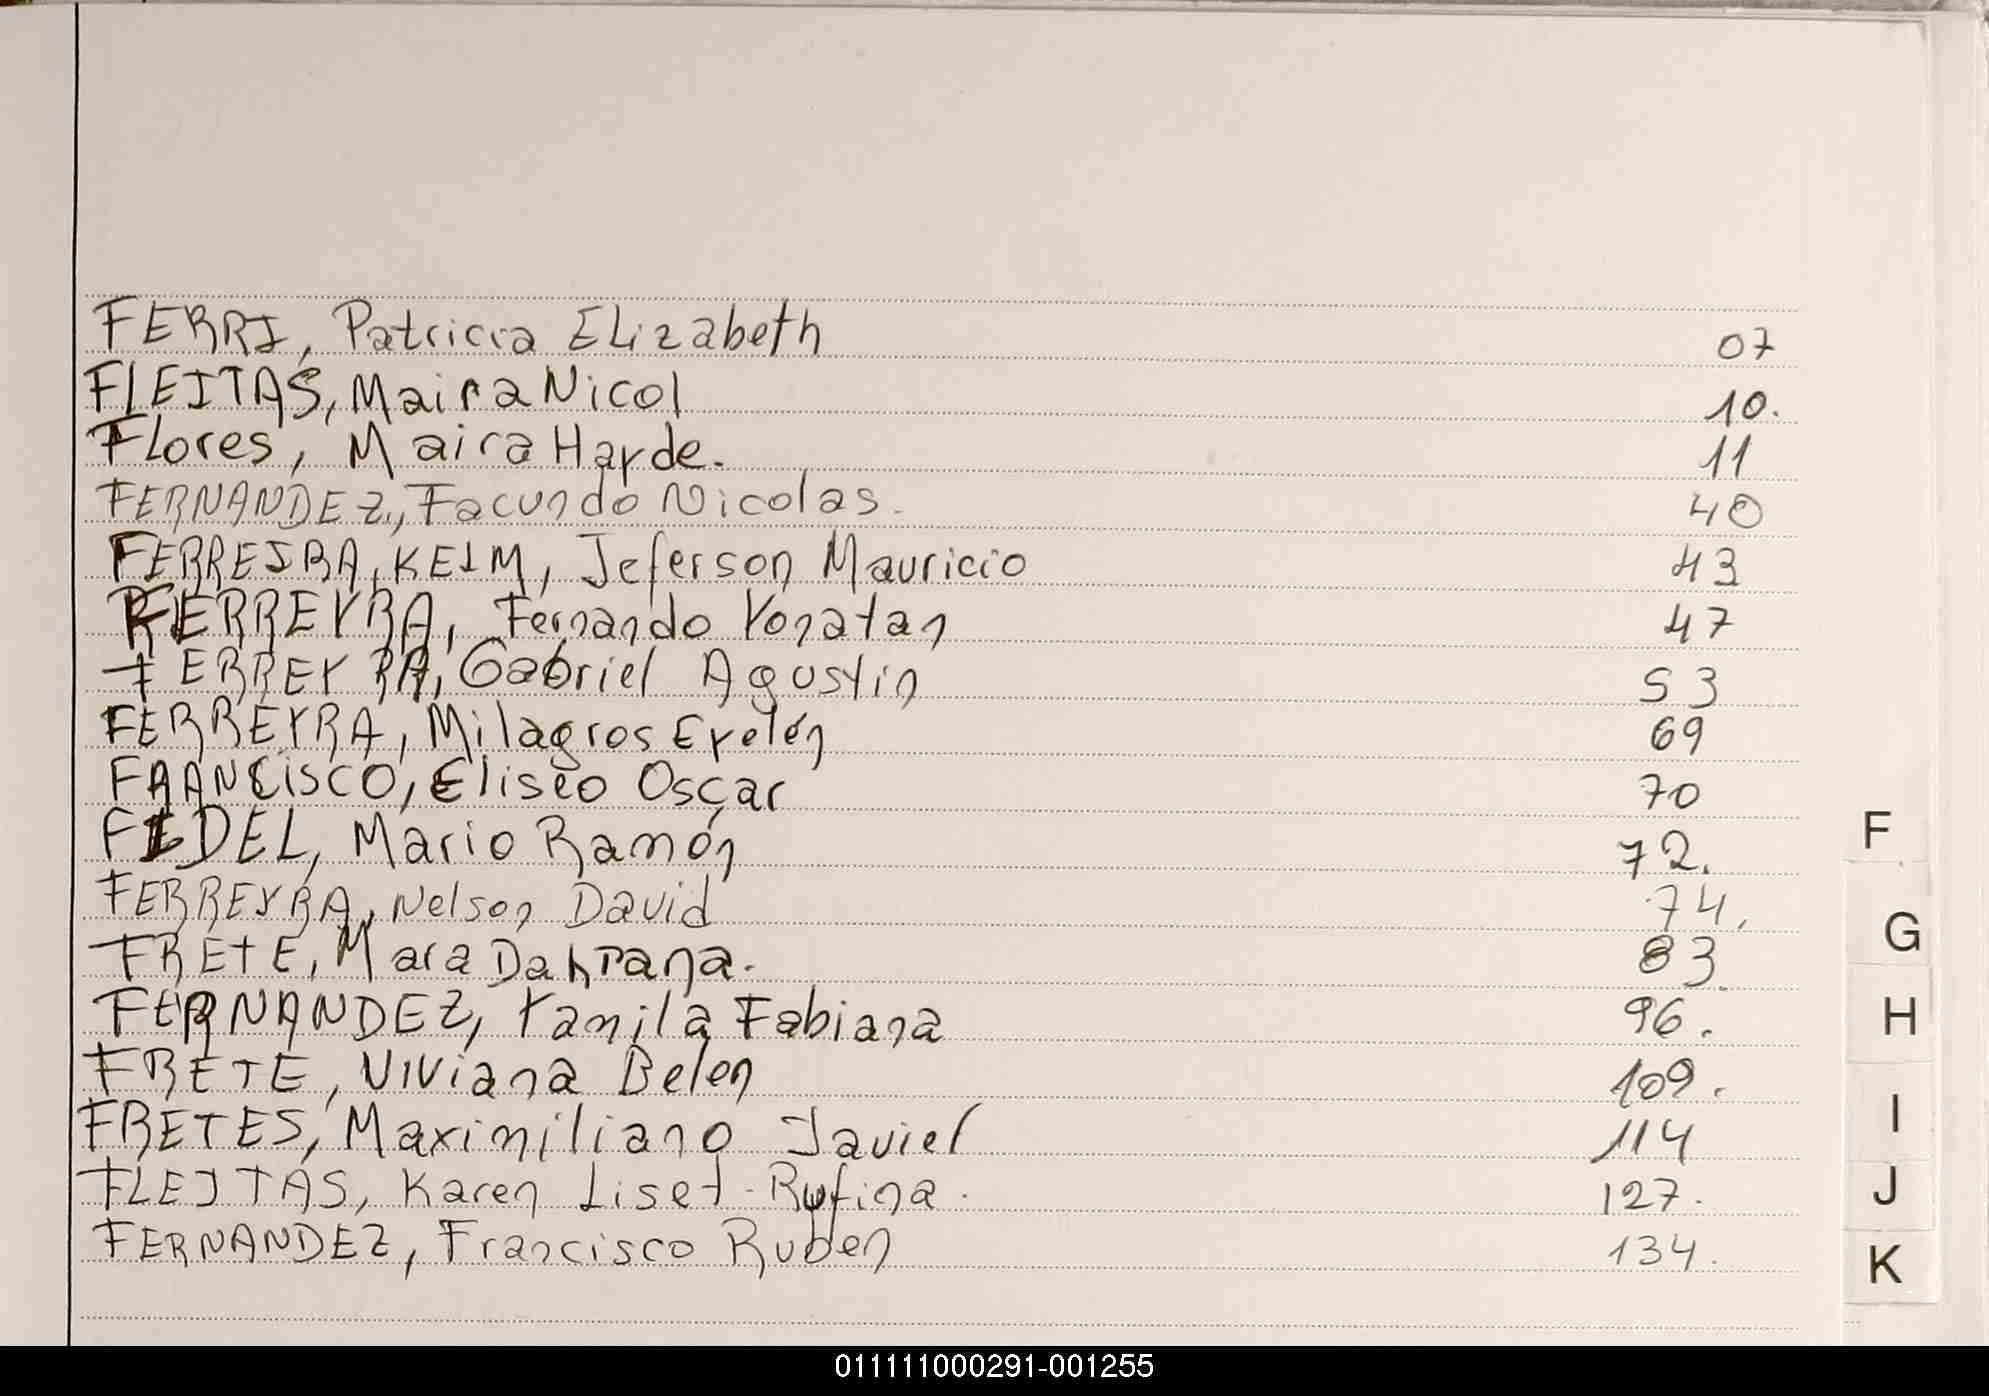 FERRI, Patricia ELizabeth 07
FLEITAS, Maira Nicol 10.
FLores, Maira Hayde. 11
FERNANDEZ, Facundo Nicolas. 40
FERREIRA, KEIM, Jeferson Mauricio 43
FERREYRA, Fernando Yonatan 47
FERREYRA, Gabriel Agustin 53
FERREYRA, Milagros Eyelén 69
FRANCISCO, Eliseo Oscar 70
FIDEL, Mario Ramón 72.
FERREYRA, Nelson David 74.
FRETE, Mara 83.
FERNANDEZ, Yamila Fabiana 96.
FRETE, Viviana Belen 109.
FRETES, Maximiliano Javier 114
FLEITAS, Karen Liset Rufina. 127.
FERNANDEZ, Francisco Ruben 134.
F
G
H
I
J
K
011111000291-001255